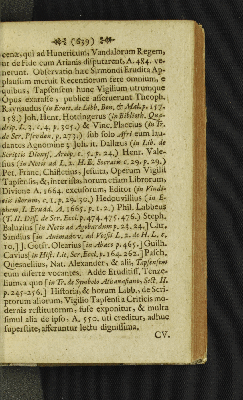 (639)
cenæ, qui ad Hunericum, Vandalorum Regem,
ut de Fide cum Arianis disputarent, A. 484. ve-
nerunt. Observatio hæc Sirmondi Erudita Ap-
plausum meruit Recentiorum fere omnium, e
quibus, Tapsensem hunc Vigilium utrumque
Opus exarasse, publice asseruerunt Theoph.
Raynaudus (in Erot. de Libb. Bon. & Mal. p. 157.
158.) Joh. Henr. Hottingerus (in Biblioth. Qua-
drip. L. 3. c. 4. p. 305.) & Vinc. Placcius (in Tr.
de Ser. Pseudon. p. 273.) sub solo Afri eum lau-
dantes Agnomine; Joh. it. Dallæus (in Lib. de
Scriptis Dionys. Areop. c. 5. p. 24.) Henr. Vale-
sius (in Notis ad L. 2. H. E. Socratis c. 29. p. 29.)
Pet. Franc. Chiffletius, Jesuita, Operum Vigilii
Tapsensis, & inter istos horum etiam Librorum,
Divione A. 1664. excusorum, Editor (in Vindi-
ciis illorum, c. 1. p. 29. 30.) Hedouvillius (in E-
phem. Erud. A. 1665. p. 1. 2.) Phil. Labbeus
(T. II. Diss. de Scr. Eccl. p. 474. 475. 476.) Steph.
Baluzius (in Notis ad Agobardum p. 23. 24.) Chr.
Sandius (in Animadv. ad Vossii L. 2. de H. L. c.
10.) J. Gotfr. Olearius (in Abaco p. 465.) Guilh.
Cavius (in Hist. Lit. Scr. Eccl. p. 164. 262.) Pasch.
Quesnellius, Nat. Alexander, & alii, Tapsensem
eum diserte vocantes. Adde Eruditiss. Tenze-
lium, a quo (in Tr. de Symbolo Athanasiano, Sect. II.
p. 245-256.) Historia, & horum Labb., de Scri-
ptorum aliorum, Vigilio Tapsensi a Criticis mo-
dernis restitutorum, fuse exponitur, & multa
simul alia de ipso, A. 550. uti creditur, adhuc
superstite, afferuntur lectu dignissima.
CV.